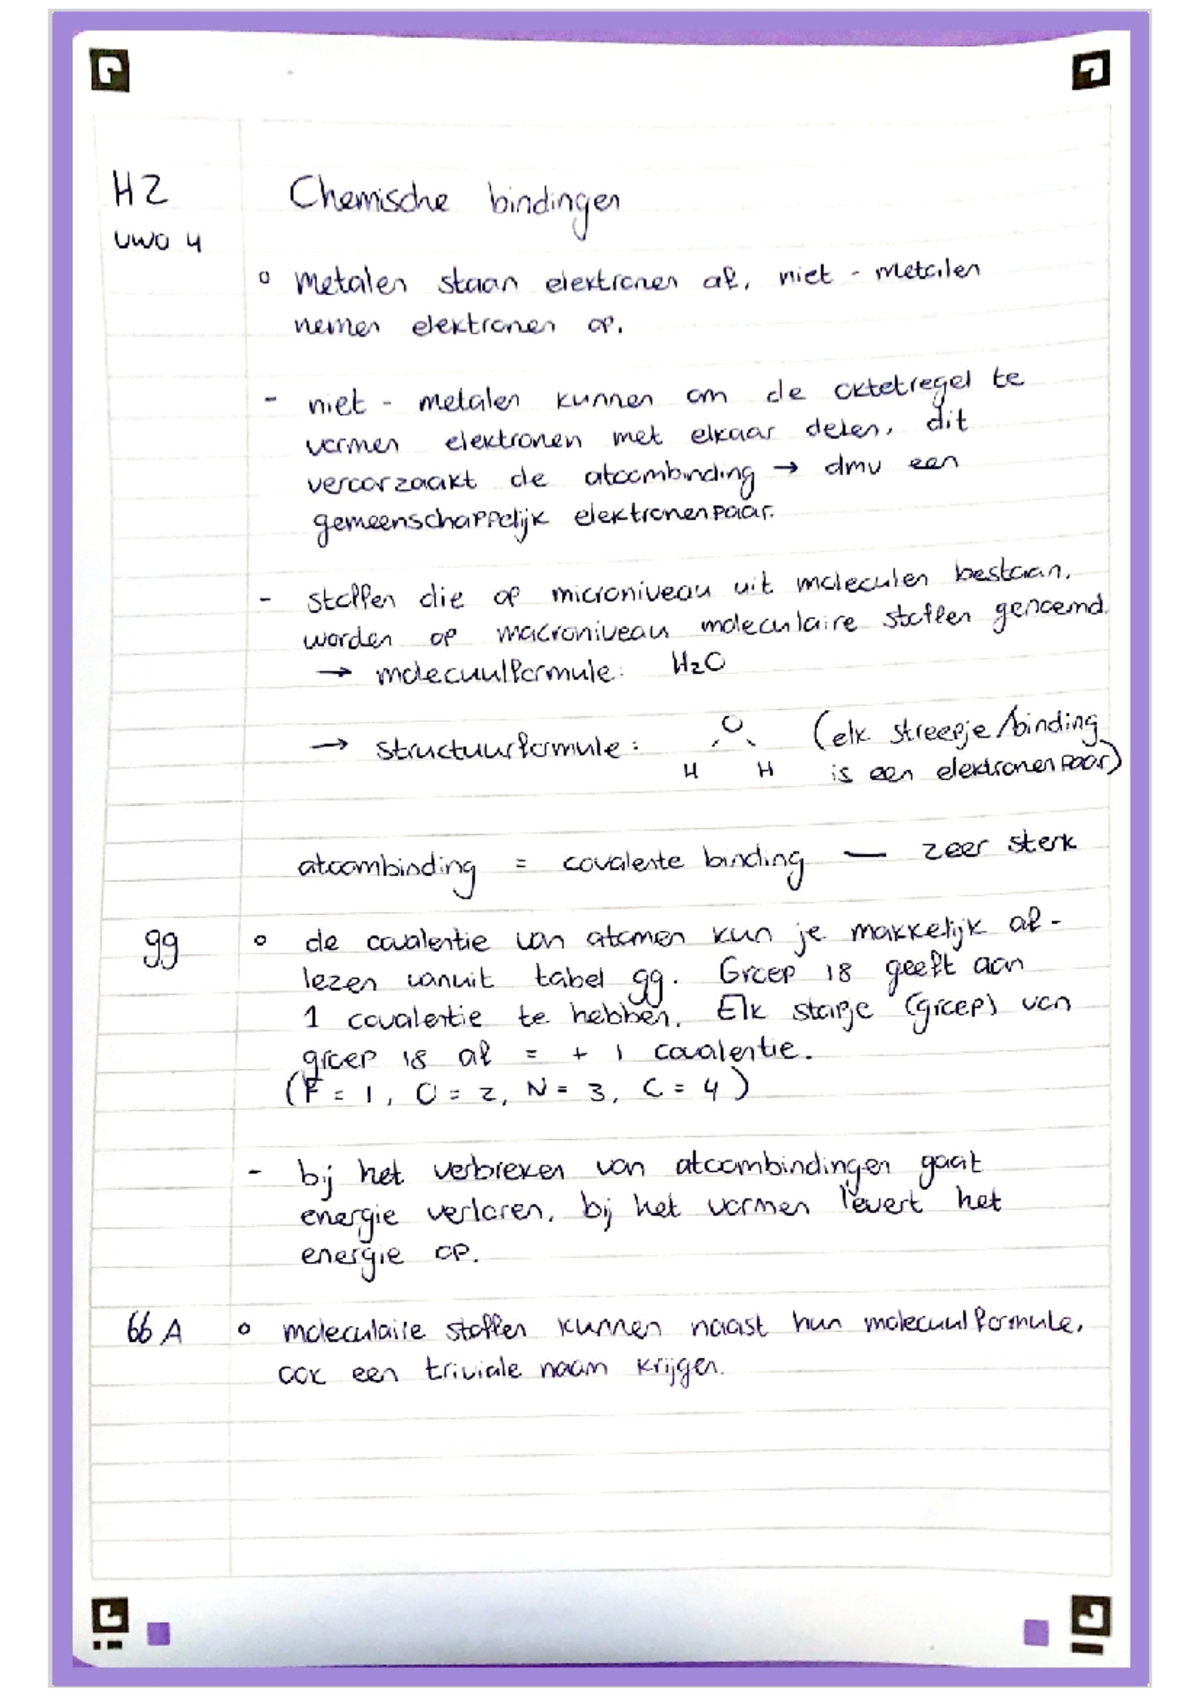 H2 Chemische bindingen
vwo 4
o metalen staan elektronen af, niet - metalen
nemen elektronen op.
- niet - metalen kunnen om de oktetregel te
vormen elektronen met elkaar delen, dit
veroorzaakt de atoombinding → dmv een
gemeenschappelijk elektronenpaar.
- stoffen die op microniveau uit moleculen bestaan,
worden op macroniveau moleculaire stoffen genoemd.
→ molecuulformule: H₂O
→ structuurformule: O (elk streepje/binding
H H is een elektronenpaar)
atoombinding = covalente binding — zeer sterk
99 o de covalentie van atomen kun je makkelijk af-
lezen vanuit tabel 99. Groep 18 geeft aan
1 covalentie te hebben. Elk stapje (groep) van
groep 18 af = + 1 covalentie.
(F = 1, O = 2, N = 3, C = 4)
- bij het verbreken van atoombindingen gaat
energie verloren, bij het vormen levert het
energie op.
66 A o moleculaire stoffen kunnen naast hun molecuulformule,
ook een triviale naam krijgen.